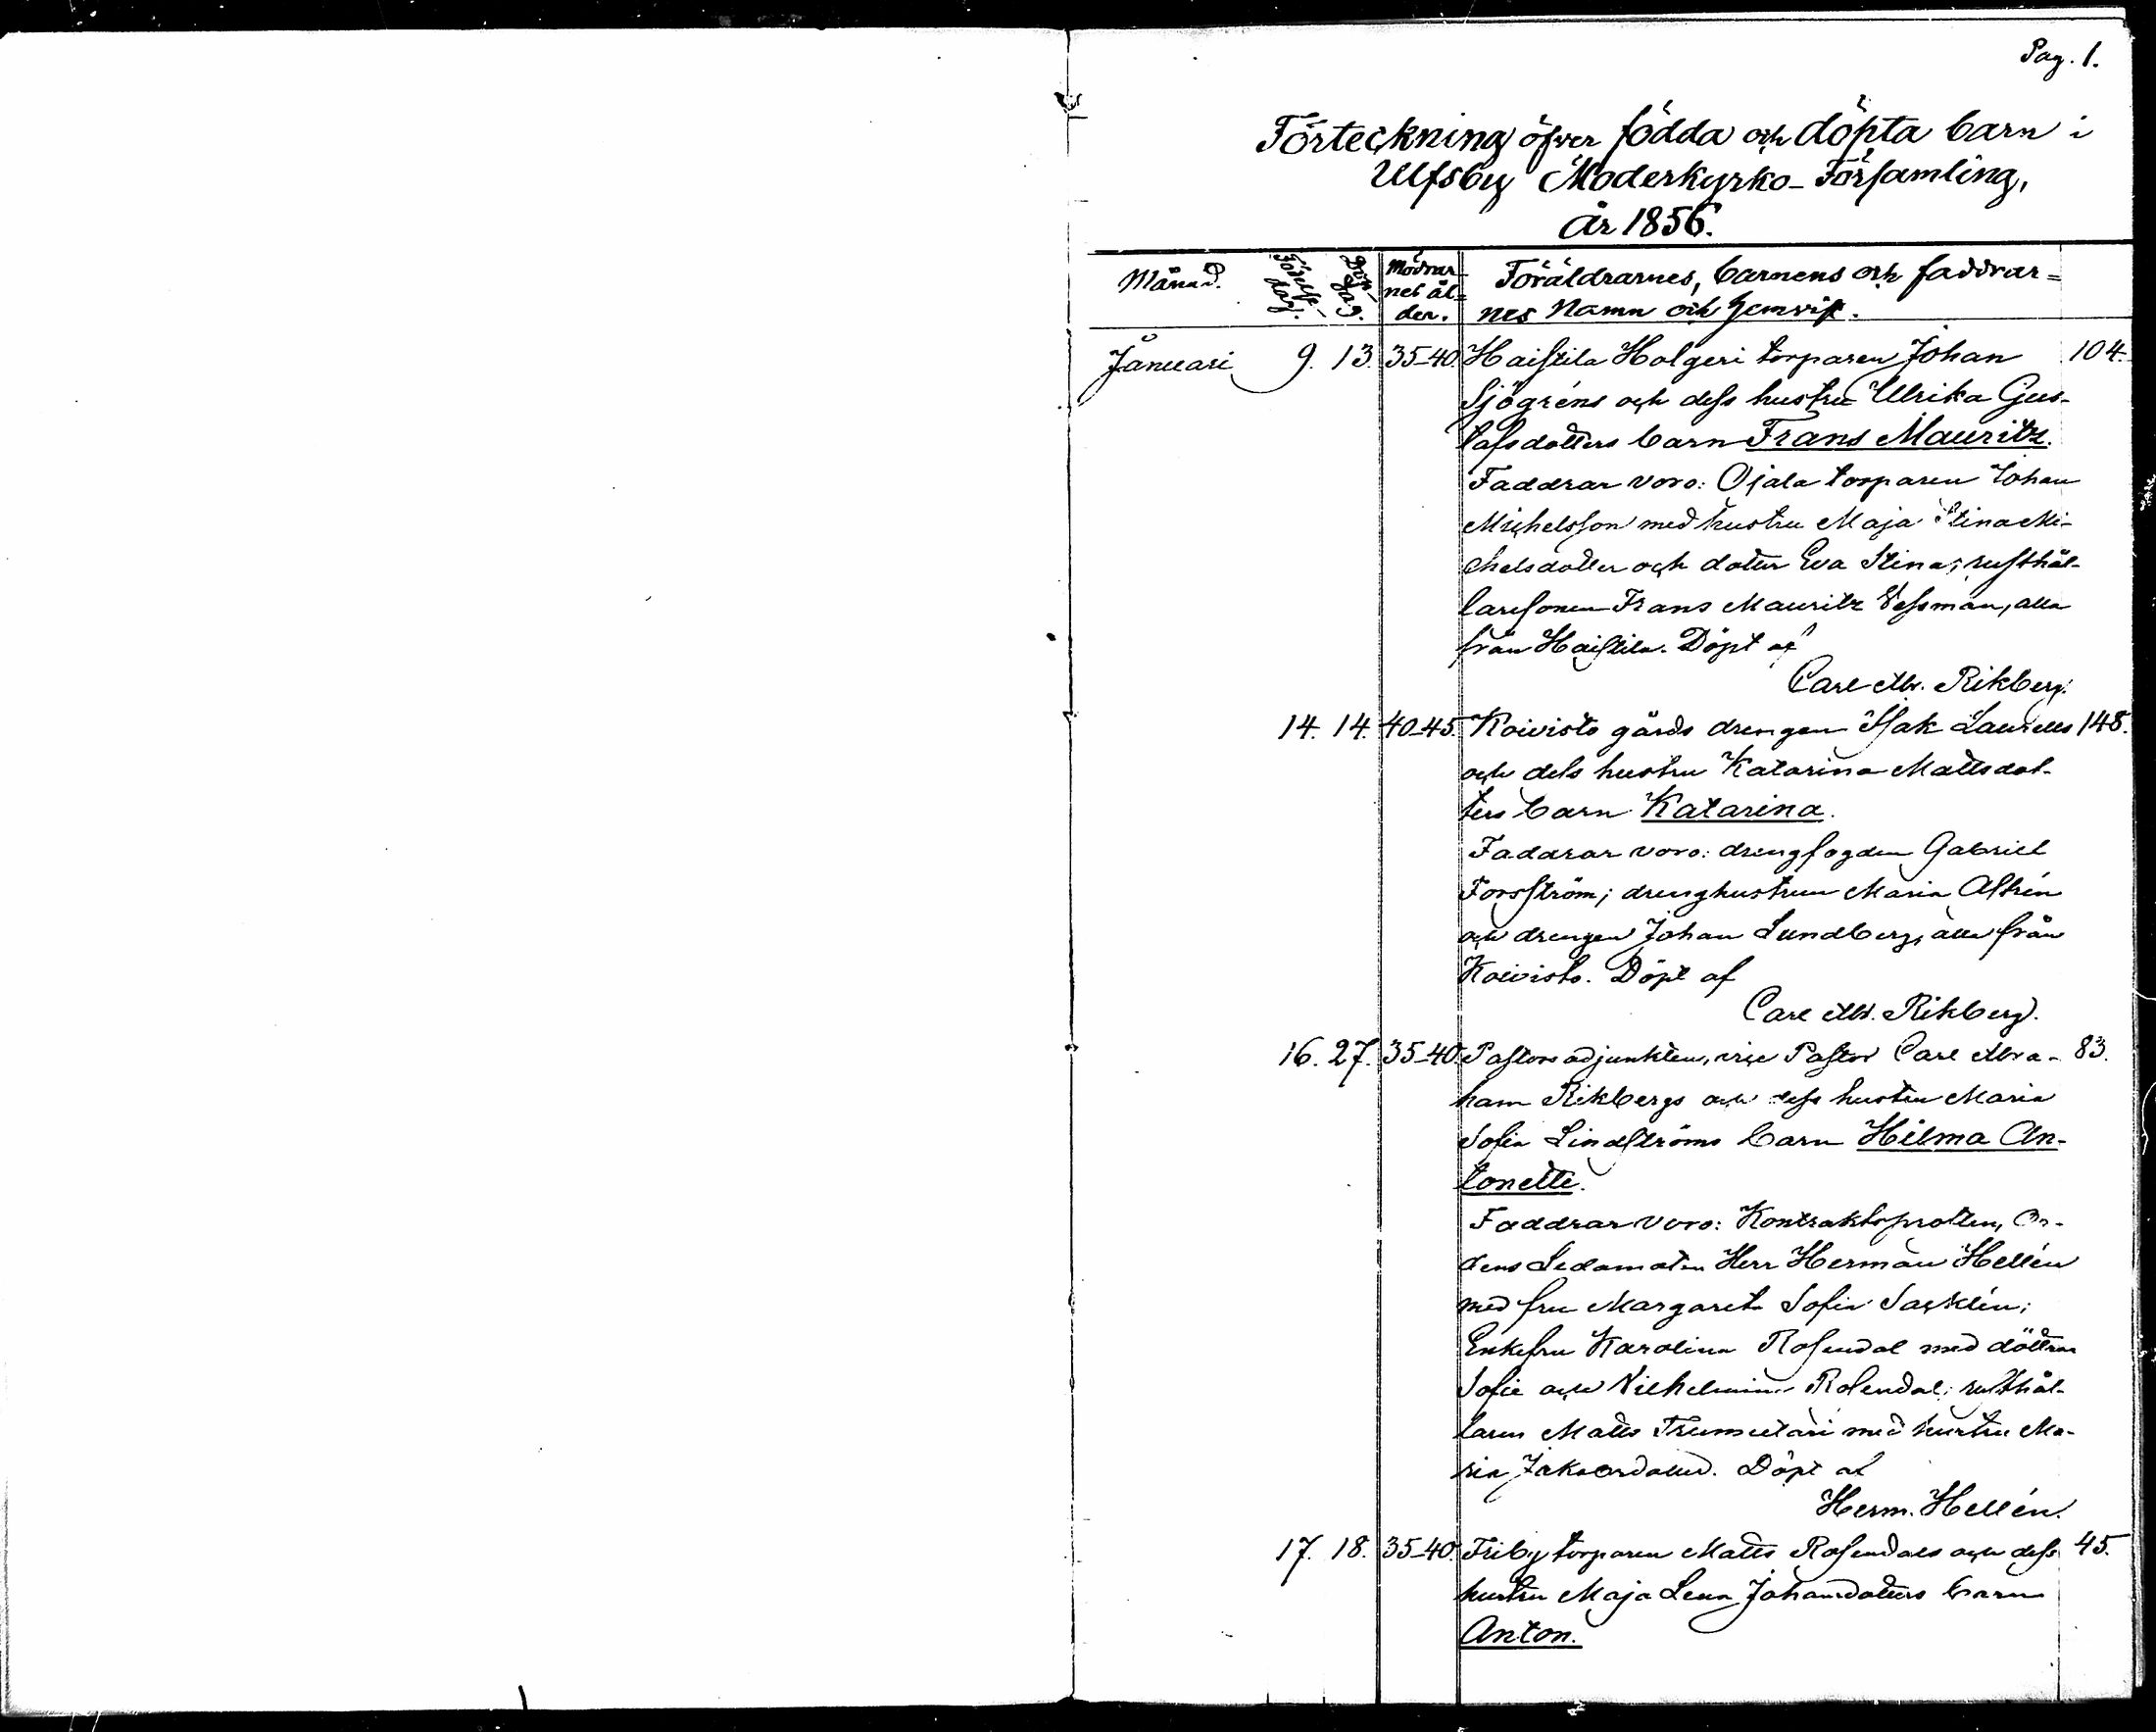 Pag. 1.
Förteckning öfver födda och döpta barn i
Ulfsby Moderkyrko-Församling,
år 1856.
Månad. Födelse-dag. Döp-dag. Mödrar-nes ål-der. Föräldrarnes, barnens och faddrar=
nes Namn och hemvist.
Januari 9. 13. 35-40. Haistila Holgeri torparen Johan 104.
Sjögréns och dess hustru Ulrika Gus-
tafsdotters barn Frans Mauritz.
Faddrar voro: Ojala torparen Johan
Michelsson med hustru Maja Stina Mi-
chelsdotter och dotter Eva Stina; rusthål-
laresonen Frans Mauritz Vessman, alla
från Haistila. Döpt af
Carl Abr. Rikberg.
14. 14. 40-45. Koivisto gårds drengen Isak Laurells 148.
och dess hustru Katarina Mattsdot-
ters barn Katarina.
Faddrar voro: drengfogden Gabriel
Forsström; dreng hustrun Maria Altrén
och drengen Johan Lundberg, alla från
Koivisto. Döpt af
Carl Abr. Rikberg.
16. 27. 35-40. Pastors adjunkten, vice Pastor Carl Abra- 83.
ham Rikbergs och dess hustru Maria
Sofia Lindströms barn Hilma An-
tonette.
Faddrar voro: Kontraktsprosten, Or-
dens Ledamoten Herr Herman Hellén
med fru Margareta Sofia Sacklén;
Enkefru Karolina Rosendal med döttrar
Sofie och Vilhelmina Rosendal; rusthål-
laren Matts Trumetari med hustru Ma-
ria Jakobsdotter. Döpt af
Herm. Hellén.
17. 18. 35-40. Friby torparen Matts Rosendals och dess 45.
hustru Maja Lena Johansdotters barn
Anton.